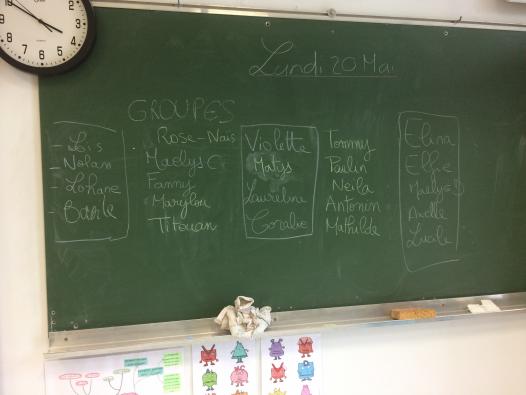 Lundi 20 Mai
GROUPES
- Loïs
- Nolan
- Lohane
- Basile
Rose-Naïs
Maelys C
Fanny
Marylou
Titouan
Violette
Matys
Laureline
Coralie
Tommy
Paulin
Neila
Antonin
Mathilde
Elina
Elfie
Maelys D
Axelle
Lucile